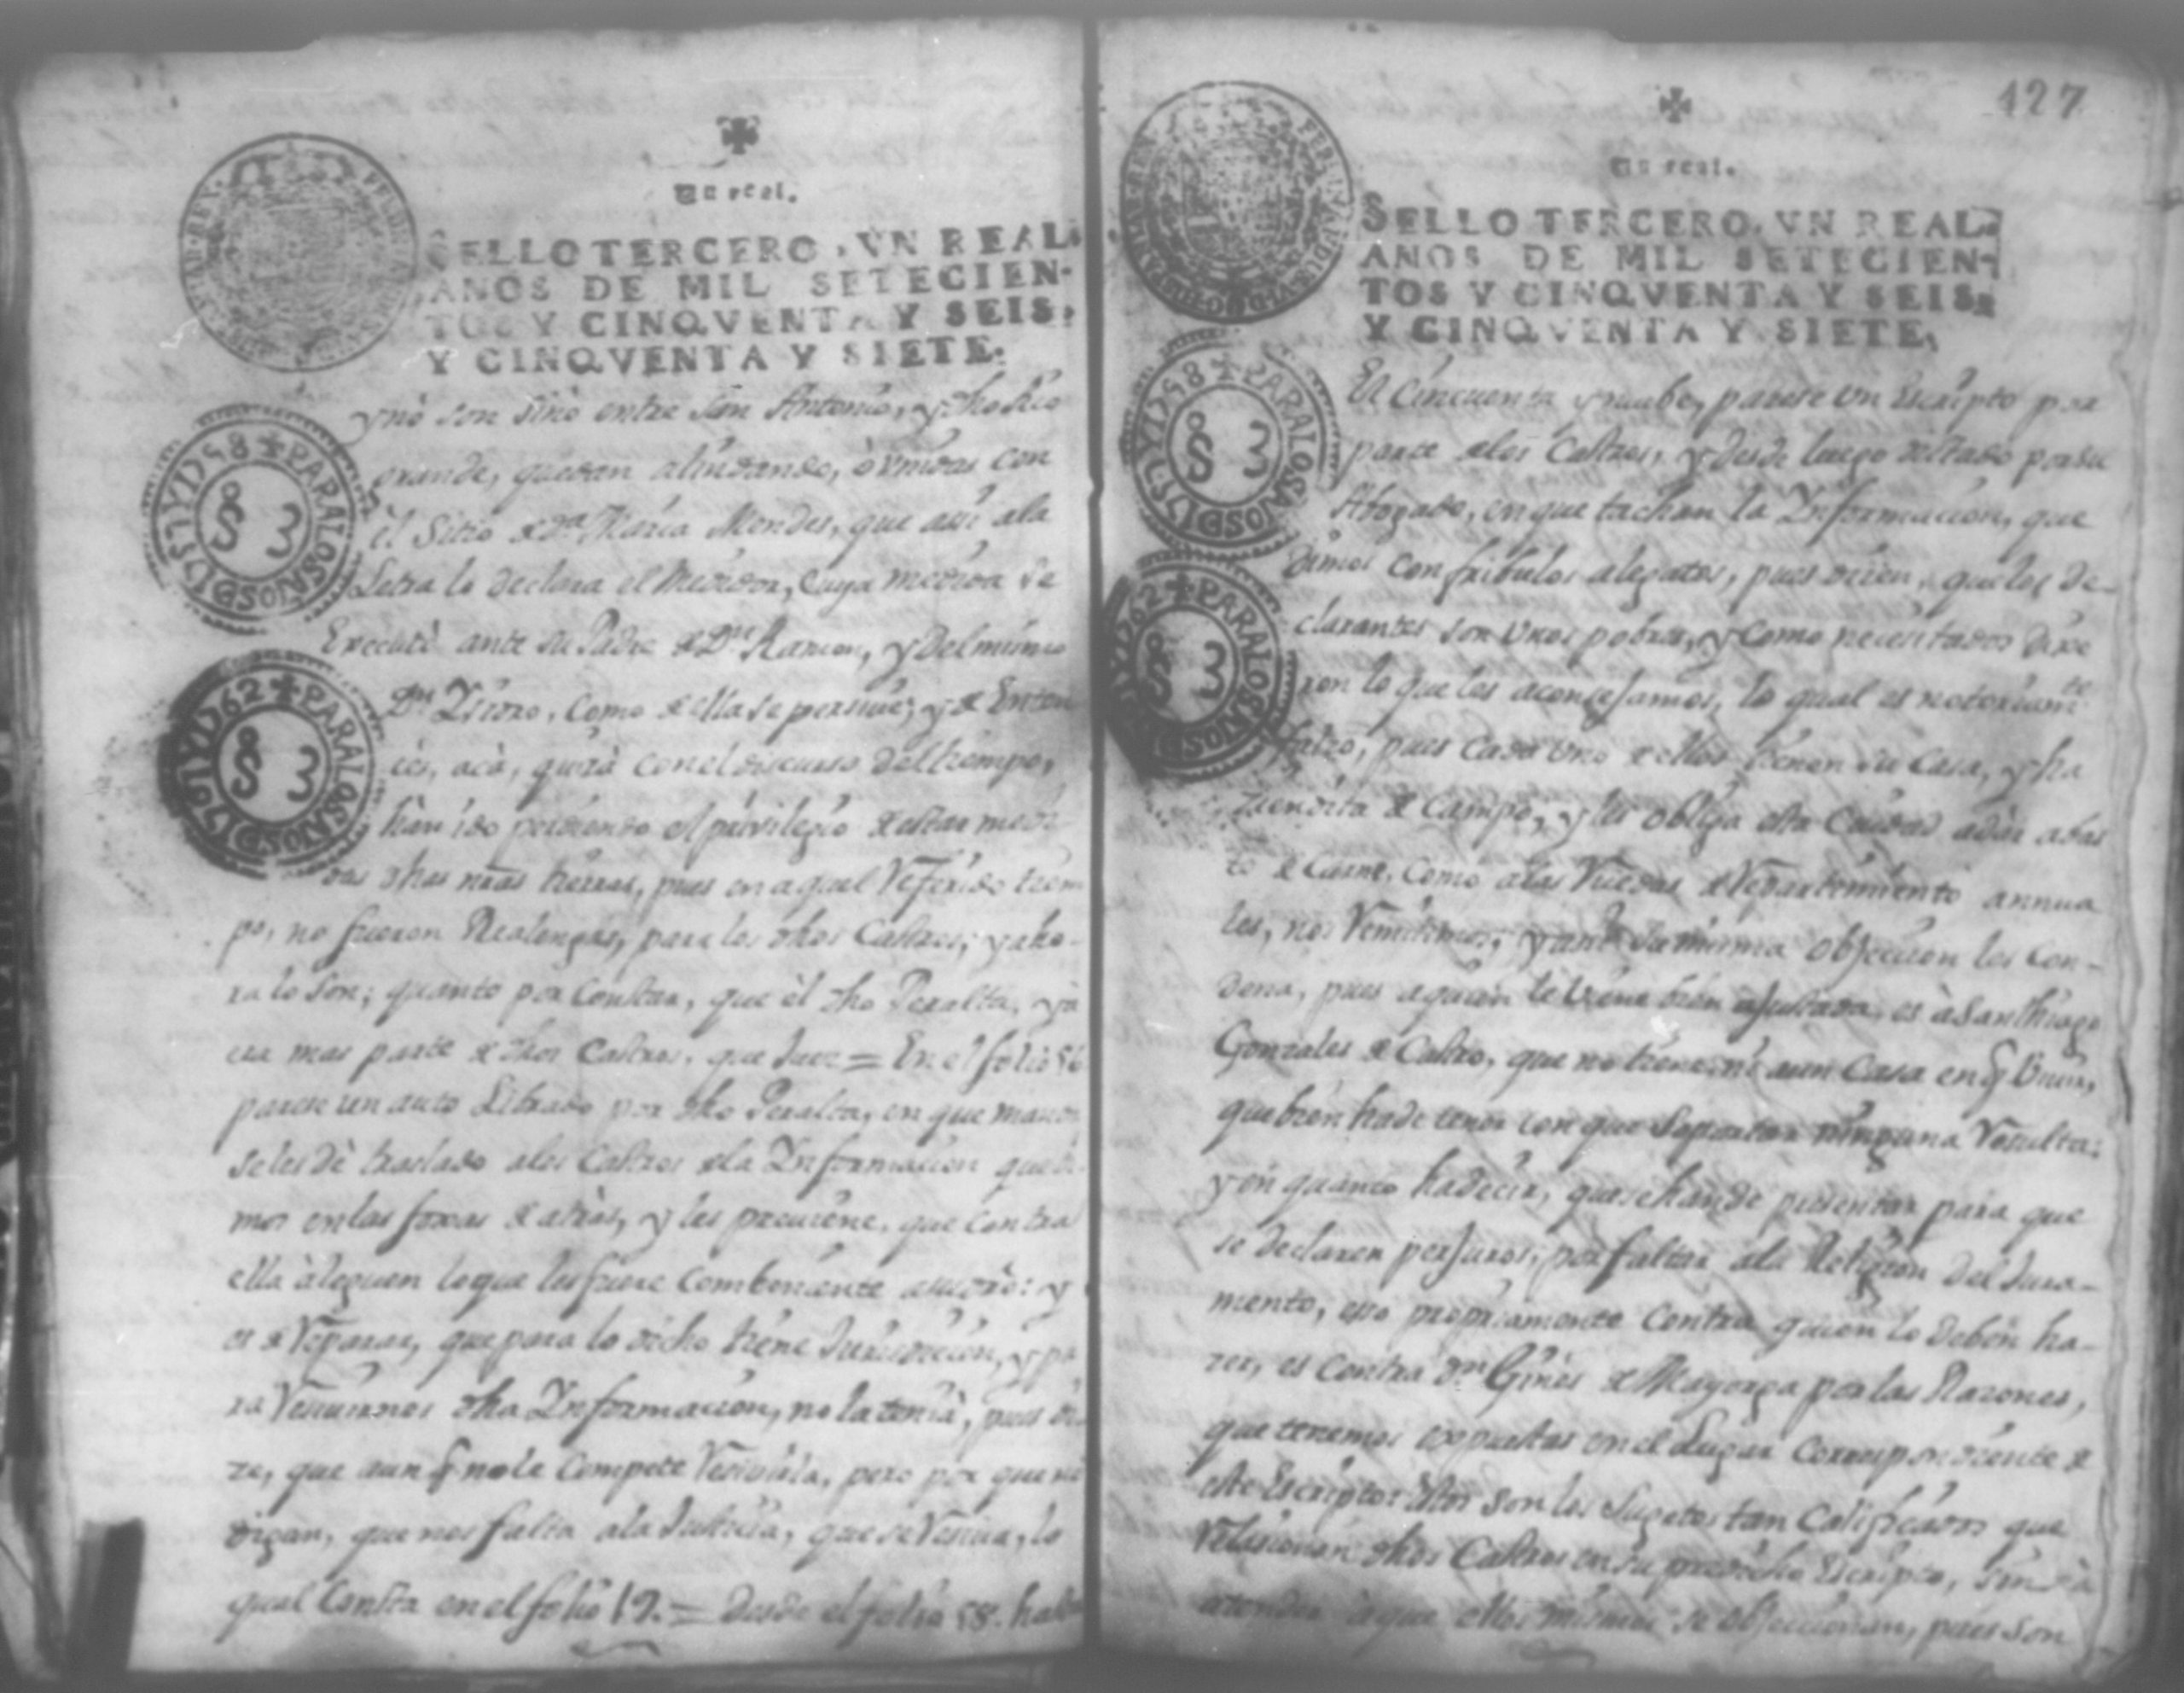 Un real.
SELLO TERCERO, VN REAL.
AÑOS DE MIL SETECIEN-
TOS Y CINQVENTA Y SEIS,
Y CINQVENTA Y SIETE.
PARA LOS AÑOS D 1757 Y 1758
§ 3
PARA LOS AÑOS D 1761 Y 1762
§ 3
y no son sino entre San Antonio, y dho Rio
grande, quedan alindando, ò unidas con
el Sitio de Da Maria Mendes, que asi ala
Letra lo declara el Medidor, Cuya medida se
Executò ante su Padre de Dn Ramon, y Del mismo
Dn Ysidro, Como de ella se persive; y de Enton
ces, acà, quizà con el discurso del tiempo,
han ido perdiendo el privilegio de estar medi
das dhas nras tierras, pues en aquel Referido tiem
po, no fueron Realengas, para los dhos Castros; y aho-
ra lo son; quanto por Constar, que èl dho Peralta,
era mas parte de dhos Castros, que Juez = En el folio 56
parese un auto Librado por dho Peralta, en que manda
se les dè traslado a los Castros de la Informacion que di
mos en las foxas de atràs, y les previene, que contra
ella àleguen lo que les fuere Combeniente a su dro: y
es de Reparar, que para lo dicho tiene Jurisdicion, y pa
ra Resivirnos dha Informacion, no la tenia, pues di
ze, que aun q̃ no le Compete Resivirla, pero por que no
digan, que nos falta a la Justicia, que se Resiva, lo
qual Consta en el folio 19. = Desde el folio 58. hasta
127
Un real.
SELLO TERCERO, VN REAL.
AÑOS DE MIL SETECIEN-
TOS Y CINQVENTA Y SEIS,
Y CINQVENTA Y SIETE.
PARA LOS AÑOS D 1757 Y 1758
§ 3
PARA LOS AÑOS D 1761 Y 1762
§ 3
El Cincuenta y nuebe, parese un Escripto por
parte de los Castros, y desde luego dictado por su
Abogado, en que tachan la Informacion, que
dimos con fribulos alegatos, pues dizen, que los de-
clarantes son unos pobres, y Como necesitados dixe
ron lo que les aconsejamos, lo qual es notoriamte
falzo, pues Cada uno de ellos tienen su Casa, y ha
ziendita de Campo, y les obliga esta Ciudad a dar abas
to de Carne, Como a las Ruedas de Repartimiento annua
les, nos Remitimos; y su misma objecion los Con-
dena, pues a quien le viene bien ajustada, es à Santhiago
Gonzales de Castro, que no tiene ni aun Casa en q̃ vivir,
que bien hade tener con que Soportar ninguna Resulta;
y en quanto hadecir, que se han de presentar para que
se declaren perjuros, por faltar ala Religion del Jura-
mento, eso propriamente Contra quien lo deben ha-
zer, es Contra Dn Ginès de Mayorga por las Razones,
que tenemos expuestas en el Lugar Correspondiente de
este Escripto: estos son los Sugetos tan Calificados que
Relasionan dhos Castros en su predicho Escripto, sin
atender àque ellos mismos se objecionan, pues son